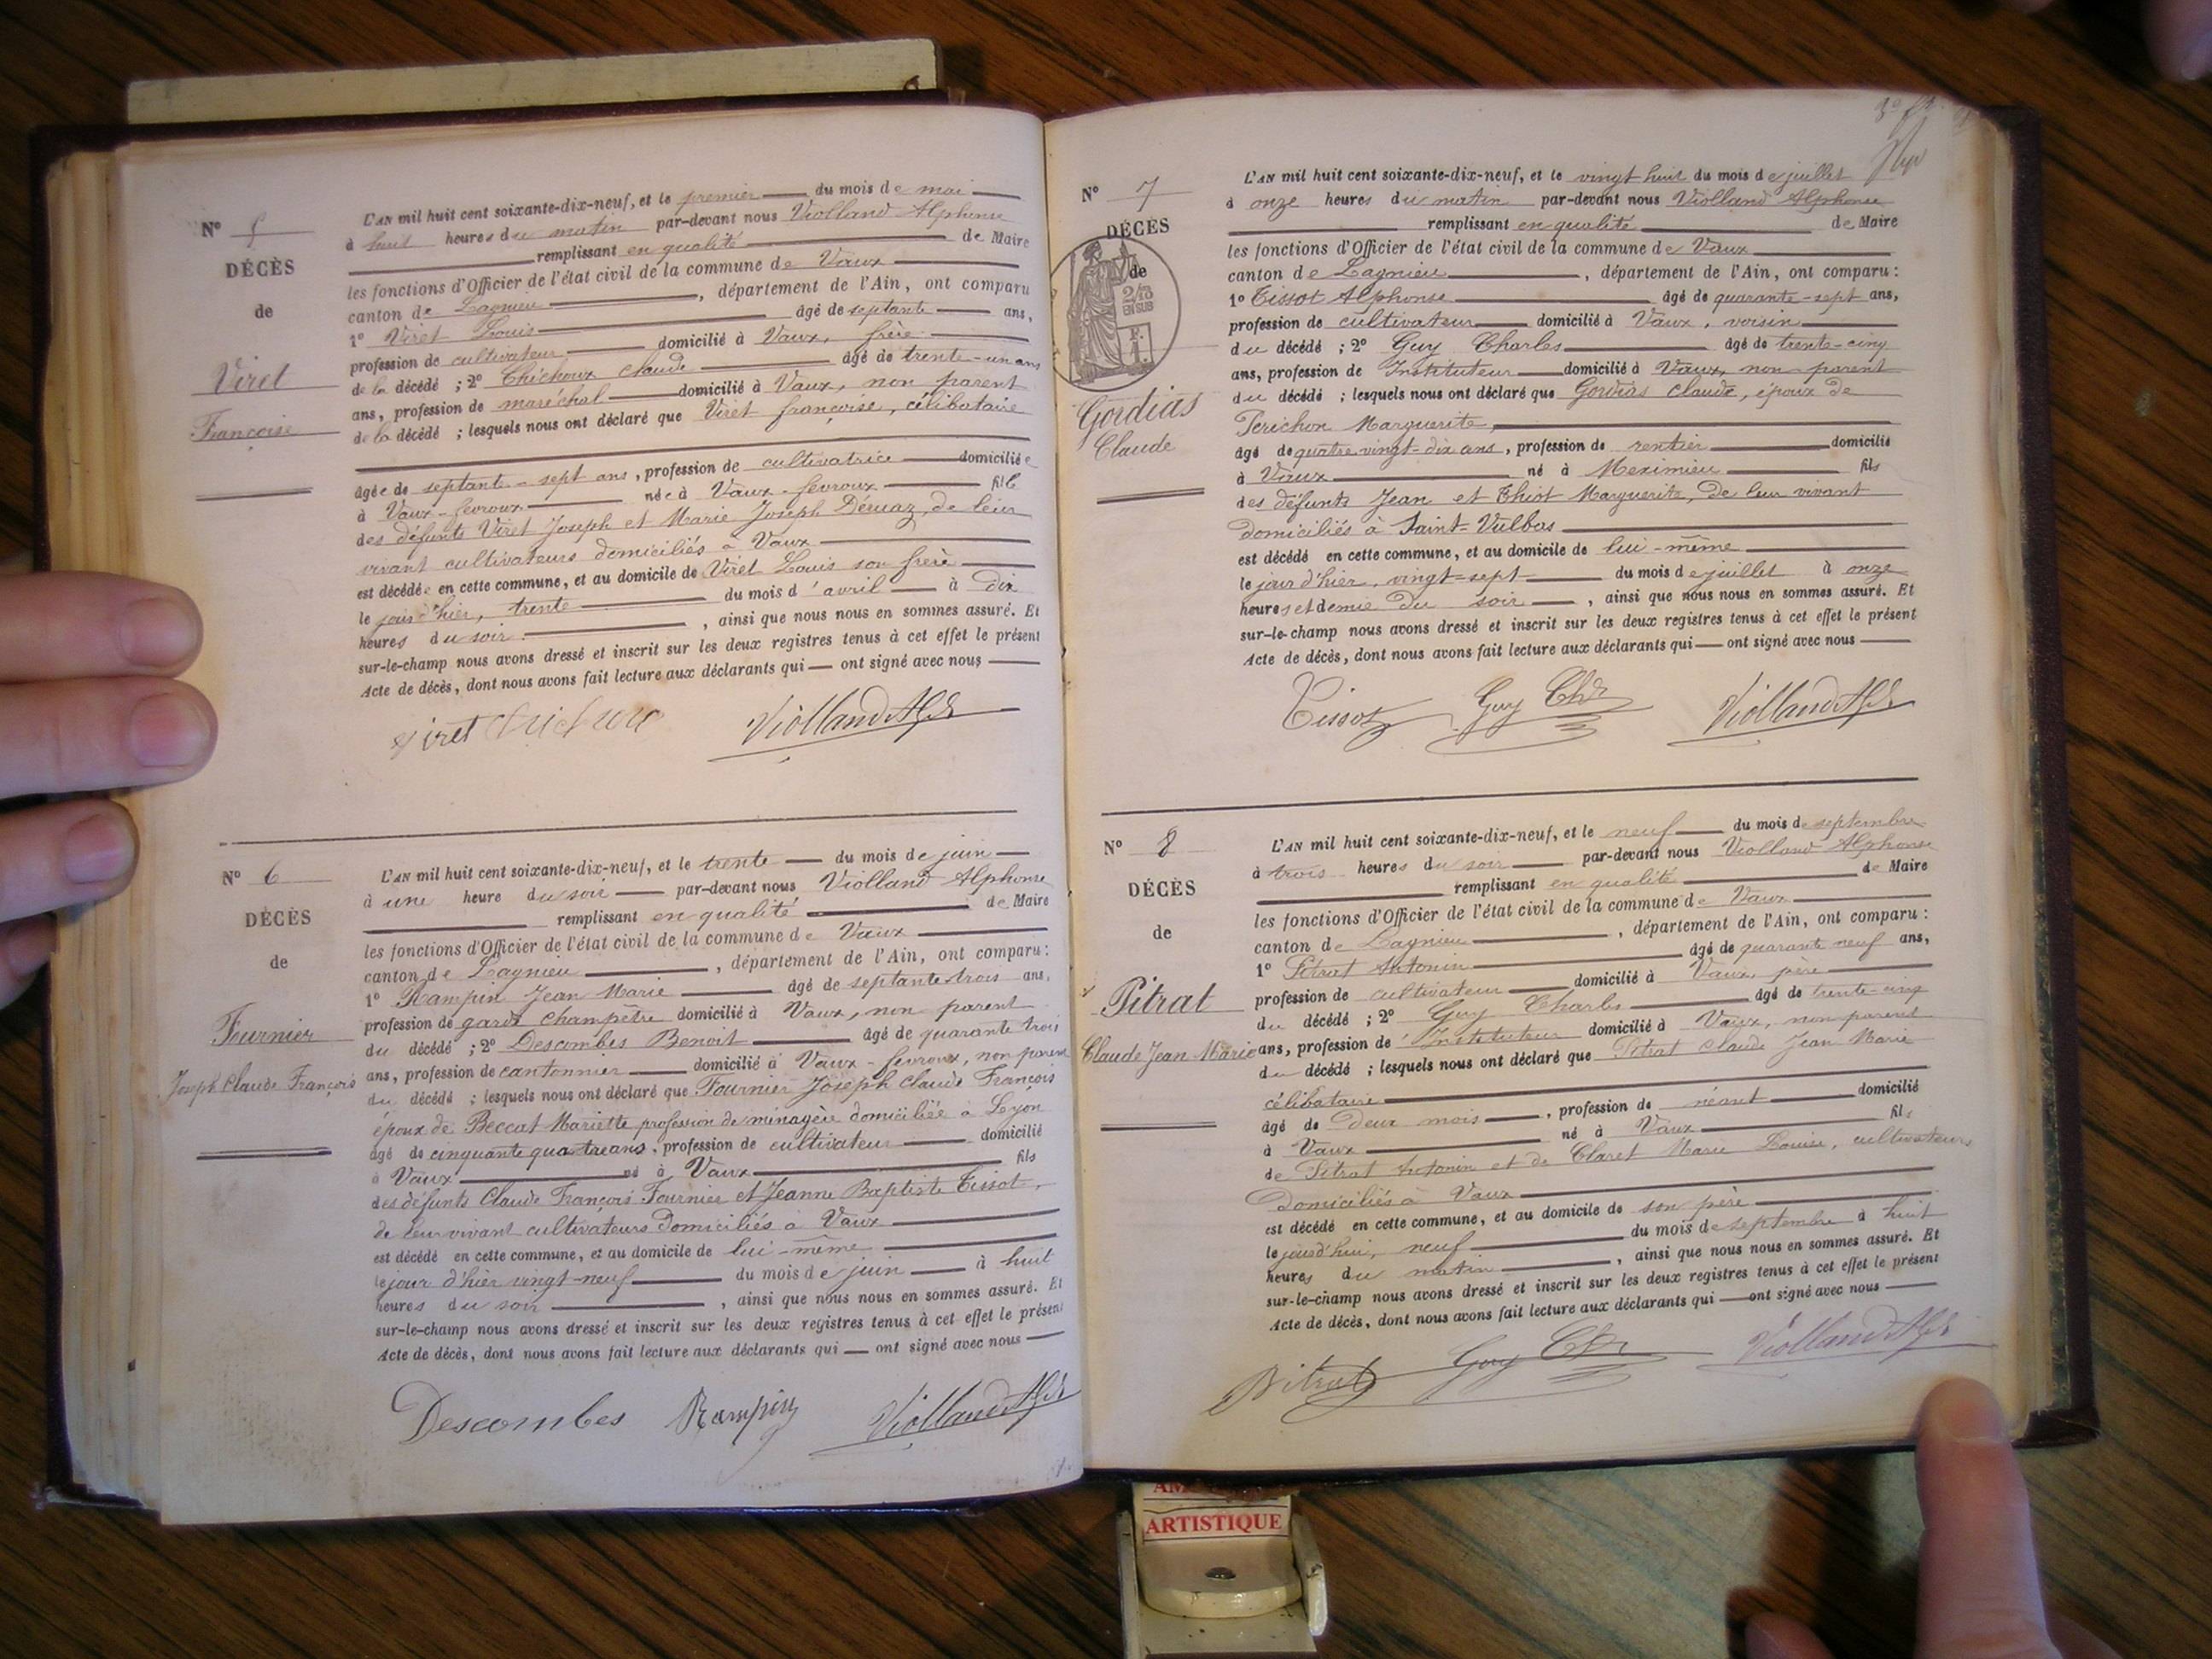 N° 5
DÉCÈS
de
Viret
Françoise
L'AN mil huit cent soixante-dix-neuf, et le premier du mois de mai
à huit heures du matin par-devant nous Violland Alphonse
remplissant en qualité de Maire
les fonctions d'Officier de l'état civil de la commune de Vaux
canton de Lagnieu, département de l'Ain, ont comparu
1° Viret Louis âgé de septante ans,
profession de cultivateur domicilié à Vaux, frère
de la décédé ; 2° Chichoux Claude âgé de trente-un ans
ans, profession de maréchal domicilié à Vaux, non parent
de la décédé ; lesquels nous ont déclaré que Viret françoise, célibataire
âgée de septante-sept ans, profession de cultivatrice domiciliée
à Vaux-fevroux née à Vaux-fevroux fille
des défunts Viret Joseph et Marie Joseph Déruaz, de leur
vivant cultivateurs domiciliés à Vaux
est décédée en cette commune, et au domicile de Viret Louis son frère
le jour d'hier, trente du mois d'avril à dix
heures du soir, ainsi que nous nous en sommes assuré. Et
sur-le-champ nous avons dressé et inscrit sur les deux registres tenus à cet effet le présent
Acte de décès, dont nous avons fait lecture aux déclarants qui — ont signé avec nous
viret Violland Alph
N° 6
DÉCÈS
de
Fournier
Joseph Claude François
L'AN mil huit cent soixante-dix-neuf, et le trente du mois de juin
à une heure du soir par-devant nous Violland Alphonse
remplissant en qualité de Maire
les fonctions d'Officier de l'état civil de la commune de Vaux
canton de Lagnieu, département de l'Ain, ont comparu :
1° Rampin Jean Marie âgé de septante trois ans,
profession de garde champêtre domicilié à Vaux, non parent
du décédé ; 2° Descombes Benoit âgé de quarante trois
ans, profession de cantonnier domicilié à Vaux-fevroux, non parent
du décédé ; lesquels nous ont déclaré que Fournier Joseph Claude François
époux de Beccat Mariette profession de ménagère domiciliée à Lyon
âgé de cinquante quatre ans, profession de cultivateur domicilié
à Vaux né à Vaux fils
des défunts Claude François Fournier et Jeanne Baptiste Tissot,
de leur vivant cultivateurs domiciliés à Vaux
est décédé en cette commune, et au domicile de lui-même
le jour d'hier vingt-neuf du mois de juin à huit
heures du soir, ainsi que nous nous en sommes assuré. Et
sur-le-champ nous avons dressé et inscrit sur les deux registres tenus à cet effet le présent
Acte de décès, dont nous avons fait lecture aux déclarants qui — ont signé avec nous
Descombes Rampin Violland Alph
N° 7
DÉCÈS
de
2/10
EN SUS
F.
1.
Gordias
Claude
L'AN mil huit cent soixante-dix-neuf, et le vingt huit du mois de juillet
à onze heures du matin par-devant nous Violland Alphonse
remplissant en qualité de Maire
les fonctions d'Officier de l'état civil de la commune de Vaux
canton de Lagnieu, département de l'Ain, ont comparu :
1° Tissot Alphonse âgé de quarante-sept ans,
profession de cultivateur domicilié à Vaux, voisin
du décédé ; 2° Guy Charles âgé de trente-cinq
ans, profession de Instituteur domicilié à Vaux, non parent
du décédé ; lesquels nous ont déclaré que Gordias Claude, époux de
Perichon Marguerite,
âgé de quatre vingt-dix ans, profession de rentier domicilié
à Vaux né à Meximieu fils
des défunts Jean et Thiot Marguerite, de leur vivant
domiciliés à Saint-Vulbas
est décédé en cette commune, et au domicile de lui-même
le jour d'hier, vingt-sept du mois de juillet à onze
heures et demie du soir, ainsi que nous nous en sommes assuré. Et
sur-le-champ nous avons dressé et inscrit sur les deux registres tenus à cet effet le présent
Acte de décès, dont nous avons fait lecture aux déclarants qui — ont signé avec nous
Tissot Guy Chs Violland Alph
N° 8
DÉCÈS
de
Pitrat
Claude Jean Marie
L'AN mil huit cent soixante-dix-neuf, et le neuf du mois de septembre
à trois heures du soir par-devant nous Violland Alphonse
remplissant en qualité de Maire
les fonctions d'Officier de l'état civil de la commune de Vaux
canton de Lagnieu, département de l'Ain, ont comparu :
1° Pitrat Antonin âgé de quarante neuf ans,
profession de cultivateur domicilié à Vaux, père
du décédé ; 2° Guy Charles âgé de trente-cinq
ans, profession de Instituteur domicilié à Vaux, non parent
du décédé ; lesquels nous ont déclaré que Pitrat Claude Jean Marie
célibataire
âgé de deux mois, profession de néant domicilié
à Vaux né à Vaux fils
de Pitrat Antonin et de Claret Marie Louise, cultivateurs
Domiciliés à Vaux
est décédé en cette commune, et au domicile de son père
le jourd'hui, neuf du mois de septembre à huit
heures du matin, ainsi que nous nous en sommes assuré. Et
sur-le-champ nous avons dressé et inscrit sur les deux registres tenus à cet effet le présent
Acte de décès, dont nous avons fait lecture aux déclarants qui — ont signé avec nous
Pitrat Guy Chs Violland Alph
ARTISTIQUE